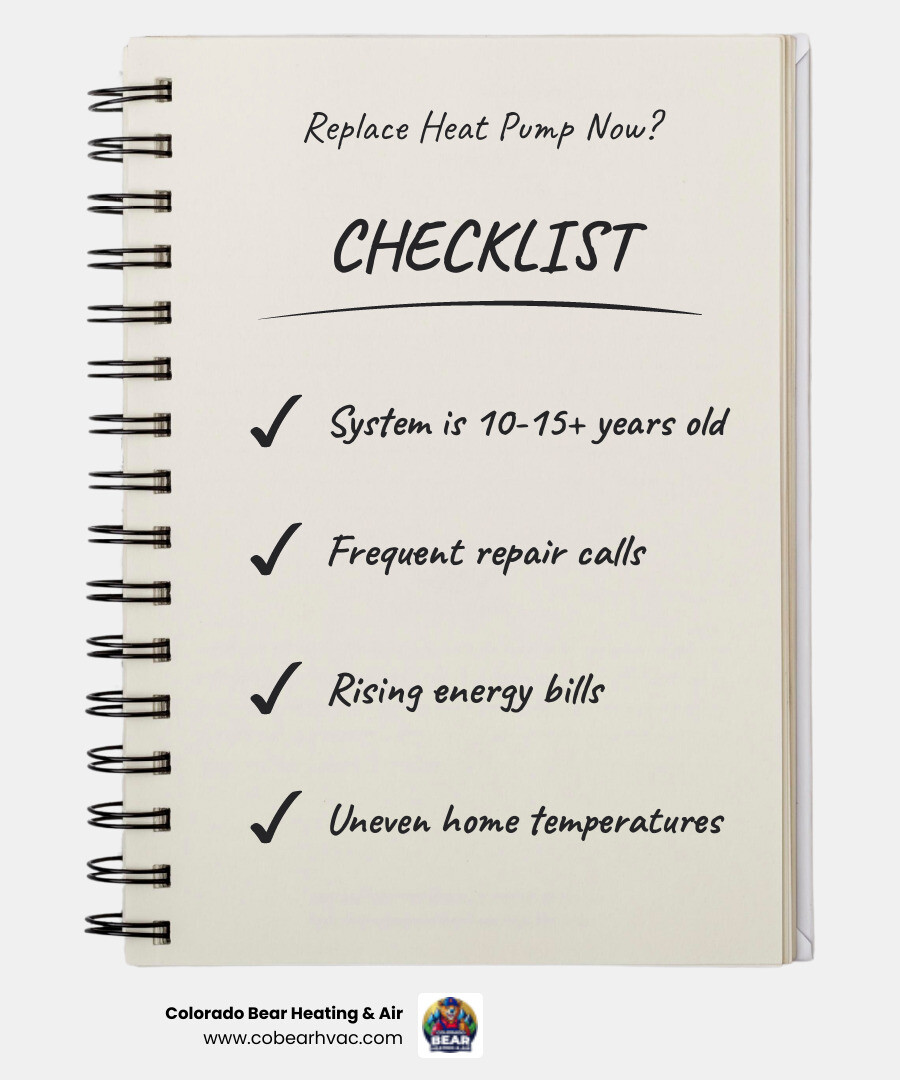 Replace Heat Pump Now?
CHECKLIST
System is 10-15+ years old
Frequent repair calls
Rising energy bills
Uneven home temperatures
Colorado Bear Heating & Air
www.cobearhvac.com
BEAR